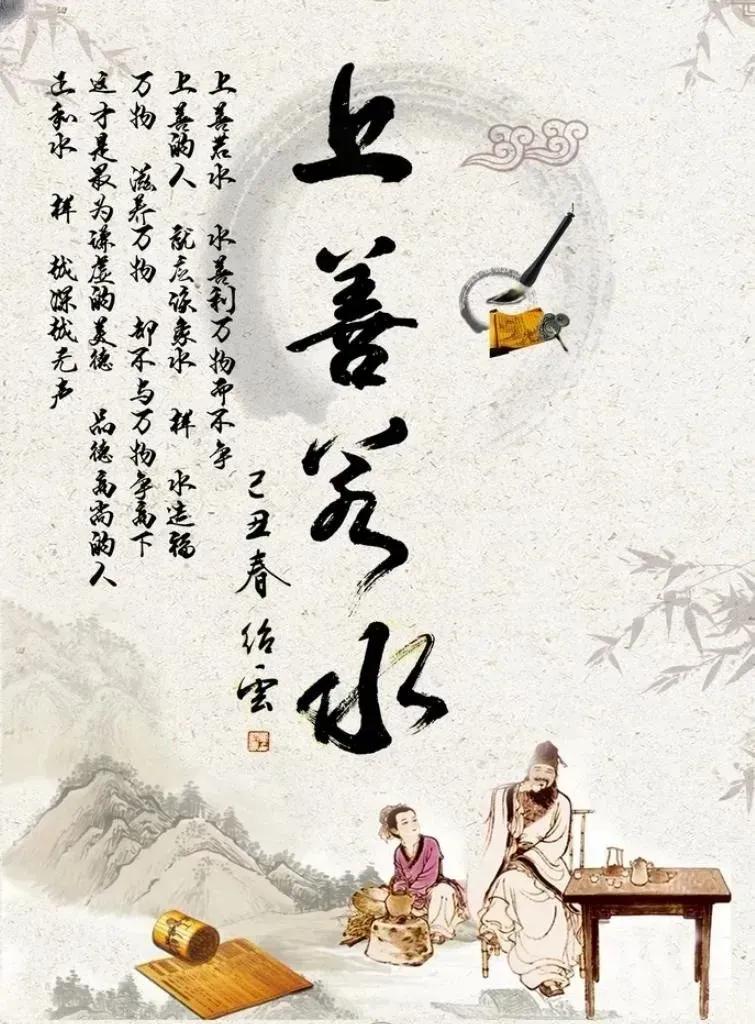 上善若水
上善若水 水善利万物而不争
上善的人 就应该象水 样 水造福
万物 滋养万物 却不与万物争高下
这才是最为谦虚的美德 品德高尚的人
正和水 样 越深越无声
己丑春 绍雲